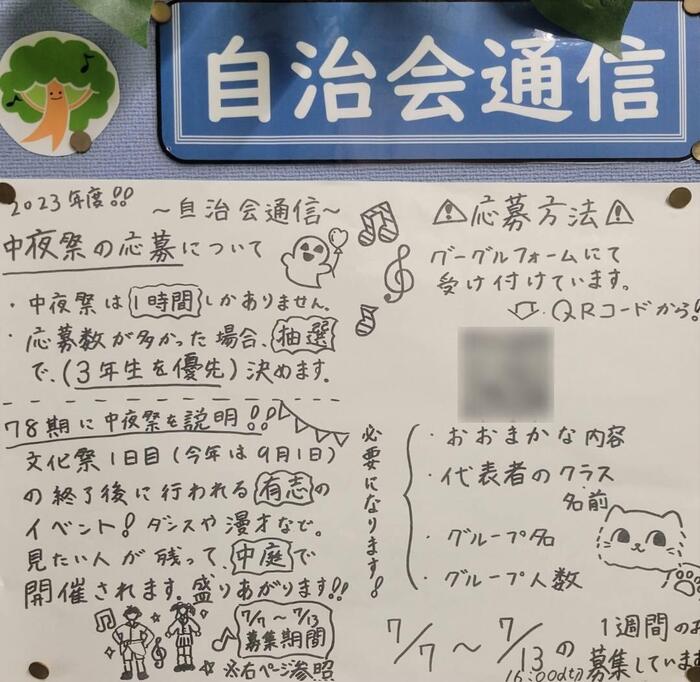 自治会通信
2023年度!!
~自治会通信~
中夜祭の応募について
・中夜祭は1時間しかありません。
・応募数が多かった場合、抽選
で、(3年生を優先)決めます。
78期に中夜祭を説明!!
文化祭1日目(今年は9月1日)
の終了後に行われる有志の
イベント!ダンスや漫才など。
見たい人が残って、中庭で
開催されます。盛りあがります!!
7/7~7/13
募集期間
※右ページ参照
⚠応募方法⚠
グーグルフォームにて
受け付けています。
⇩・QRコードから!
必要になります!
・おおまかな内容
・代表者のクラス
名前
・グループ名
・グループ人数
7/7~7/13の
16:00まで
1週間のみ
募集しています